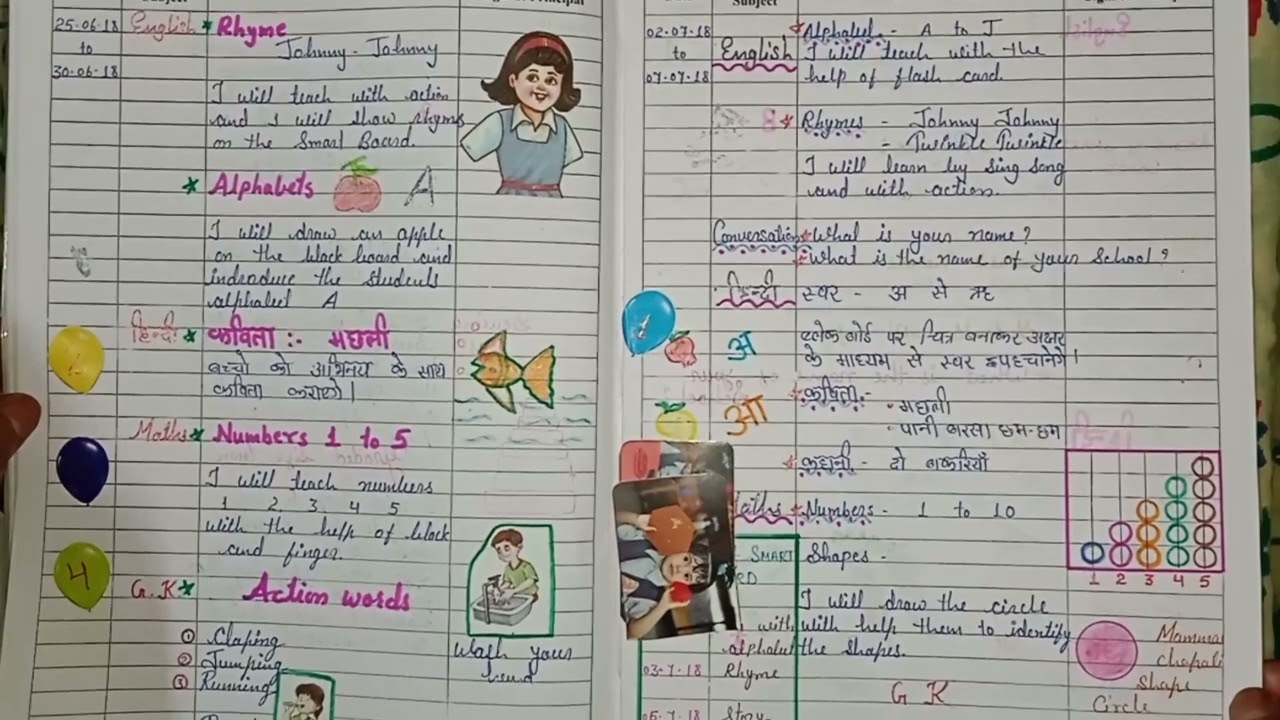 25-06-18 English * Rhyme
to Johnny - Johnny
30-06-18
I will teach with action
and I will show rhymes
on the Smart Board.
* Alphabets A
I will draw an apple
on the black board and
indroduce the students
alphabet A
हिन्दी * कविता :- मछली
बच्चो को अभिनय के साथ
कविता कराएगे।
Maths * Numbers 1 to 5
I will teach numbers
1 2 3 4 5
with the help of block
and finger.
4
G.K * Action words
① Claping
② Jumping
③ Running
Wash your
hend
Subject
02-07-18 * Alphabet - A to J
to English I will teach with the
07-07-18 help of flash card.
* Rhymes - Johnny Johnny
- Twinkle Twinkle
I will learn by sing song
and with action.
Conversation * What is your name?
* What is the name of your School?
हिन्दी स्वर - अ से ऋ
अ ब्लेक बोर्ड पर चित्र बनाकर अक्षर
के माध्यम से स्वर पहचानेगे।
आ * कविता :-
• मछली
• पानी बरसा छम-छम
* कहानी - दो बकरियाँ
Maths * Numbers - 1 to 10
1 2 3 4 5
SMART Shapes -
RD
I will draw the circle
with with help them to identify
alphabet the shapes.
Mammas
chapati
shape
Circle
03-7-18 Rhyme
G K
05-7-18 Story